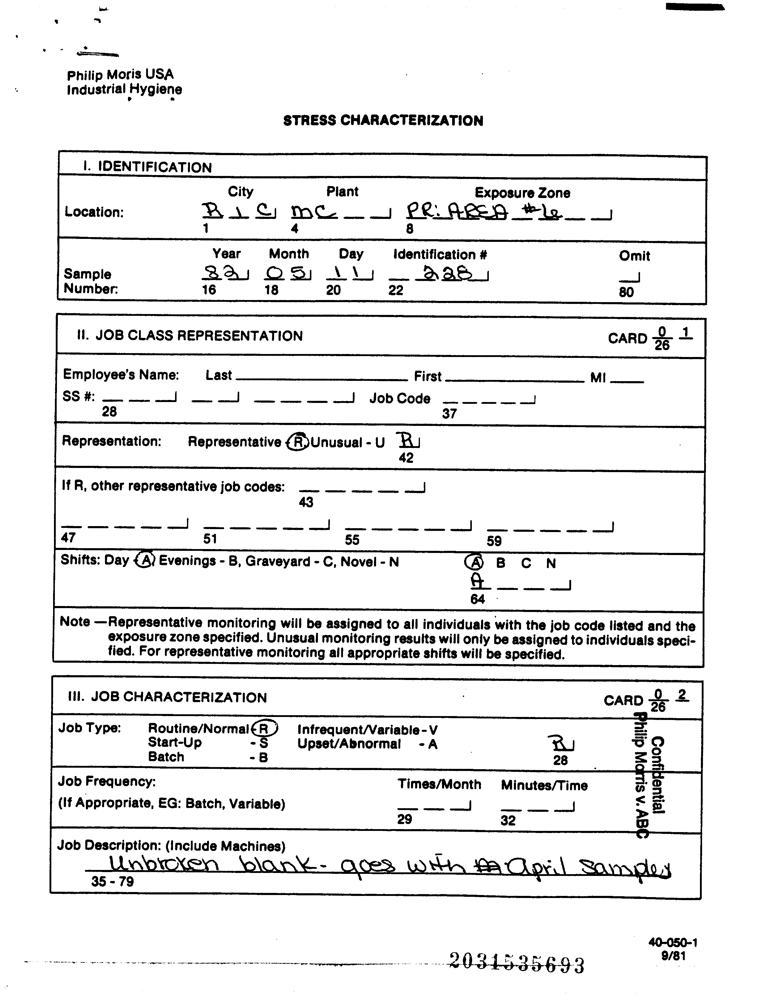 Philip Moris USA
Industrial Hygiene
STRESS CHARACTERIZATION
I. IDENTIFICATION
City Plant Exposure Zone
Location: R I C MC _ _ PR: AREA #6 _ _
1 4 8
Year Month Day Identification # Omit
Sample Number: 82 05 11 _ 228 _
16 18 20 22 80
II. JOB CLASS REPRESENTATION CARD 0 1
26
Employee's Name: Last ____ First ____ MI ____
SS #: _ _ _ _ _ _ _ _ _ Job Code _ _ _ _ _
28 37
Representation: Representative - R Unusual - U R
42
If R, other representative job codes: _ _ _ _
43
47 51 55 59
Shifts: Day - A Evenings - B, Graveyard - C, Novel - N A B C N
A _ _ _
64
Note — Representative monitoring will be assigned to all individuals with the job code listed and the
exposure zone specified. Unusual monitoring results will only be assigned to individuals speci-
fied. For representative monitoring all appropriate shifts will be specified.
III. JOB CHARACTERIZATION CARD 0 2
26
Job Type: Routine/Normal - R Infrequent/Variable - V
Start-Up - S Upset/Abnormal - A R
Batch - B 28
Job Frequency: Times/Month Minutes/Time
(If Appropriate, EG: Batch, Variable) _ _ _ _ _ _
29 32
Confidential
Philip Morris v. ABC
Job Description: (Include Machines)
Unbroken blank - goes with April samples
35 - 79
40-050-1
9/81
2031535693